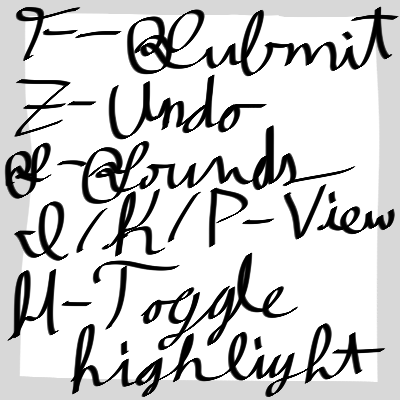 T--Submit
Z-Undo
S-Sounds
/K/P-View
H-Toggle
highlight